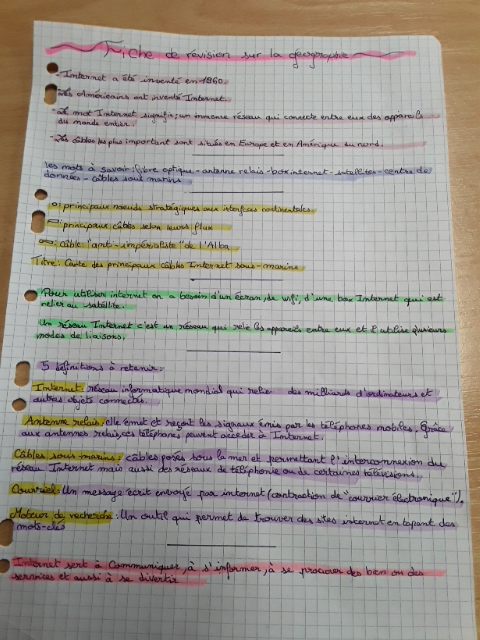 Fiche de révision sur la géographie
- Internet a été inventé en 1960.
- Les Américains ont inventé Internet.
- Le mot Internet signifie; un immense réseau qui connecte entre eux des appareils
du monde entier.
- Les câbles les plus important sont situés en Europe et en Amérique du nord.
Les mots à savoir: fibre optique - antenne relais - box internet - satellites - centre de
données - câbles sous marins.
o: principaux noeuds stratégiques aux interfaces continentales
: principaux câbles selon leurs flux
: câble "anti-impérialiste" de l'Alba
Titre: Carte des principaux câbles Internet sous-marins
Pour utiliser internet on a besoin d'un écran, du wifi, d'une box Internet qui est
relier au satellite.
Un réseau Internet c'est un réseau qui relie les appareils entre eux et il utilise plusieurs
modes de liaisons.
5 définitions à retenir:
Internet: réseau informatique mondial qui relie des milliards d'ordinateurs et
autres objets connectés.
Antenne relais: elle émet et reçoit les signaux émis par les téléphones mobiles. Grâce
aux antennes relais, ces téléphones peuvent accéder à Internet.
Câbles sous-marins: câbles posés sous la mer et permettant l'interconnexion du
réseau Internet mais aussi des réseaux de téléphonie ou de certaines télévisions.
Courriel: Un message écrit envoyé par internet (contraction de "courrier électronique").
Moteur de recherche: Un outil qui permet de trouver des sites internet en tapant des
mots-clés
Internet sert à Communiquer, à s'informer, à se procurer des bien ou des
services et aussi à se divertir